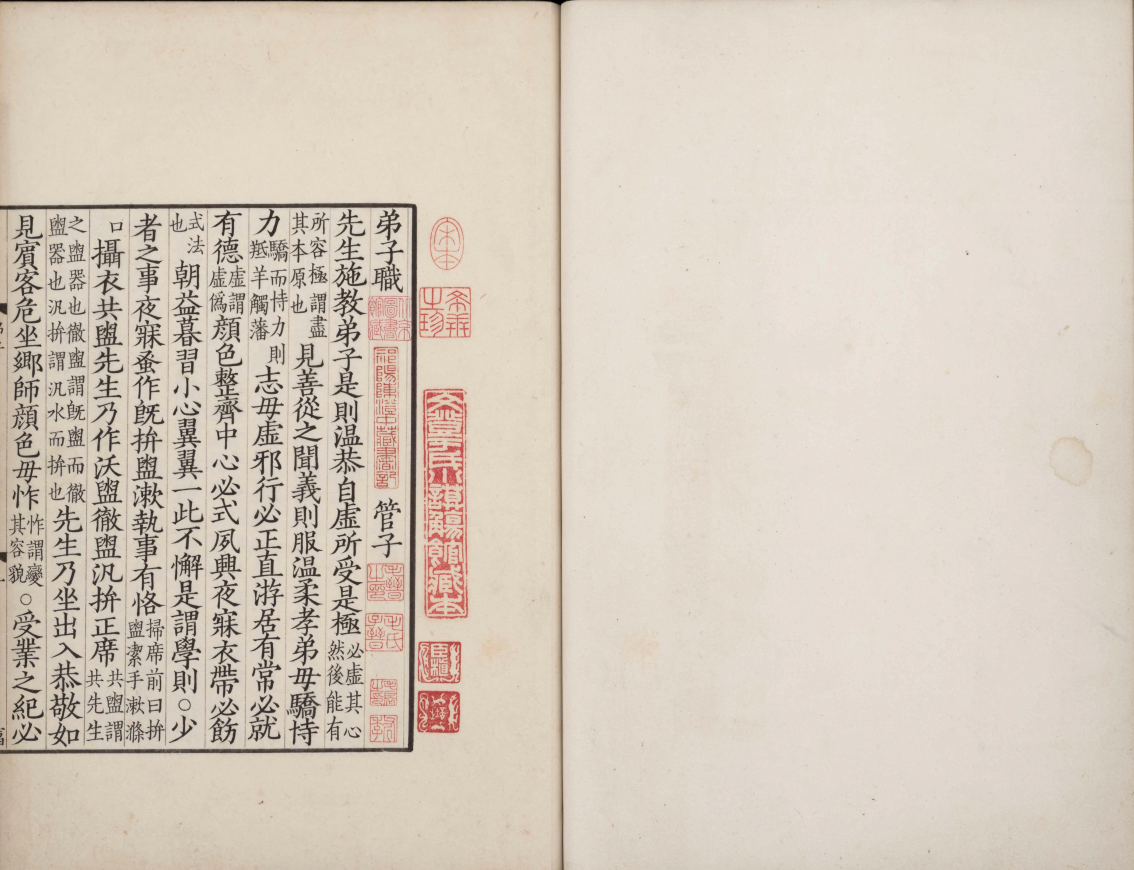 宋本
希世之珍
文登于氏小謨觴館藏本
弟子職
祁陽陳澄中藏書記
管子
毛晉之印
毛氏子晉
先生施教弟子是則温恭自虚所受是極必虚其心然後能有
所容極謂盡其本原也見善從之聞義則服温柔孝弟毋驕恃
力驕而恃力則羝羊觸藩志毋虚邪行必正直游居有常必就
有德虚謂虚僞顔色整齊中心必式夙興夜寐衣帶必飭
式法也朝益暮習小心翼翼一此不懈是謂學則○少
者之事夜寐蚤作旣拚盥漱執事有恪掃席前曰拚盥潔手漱滌
口攝衣共盥先生乃作沃盥徹盥汎拚正席共盥謂共先生
之盥器也徹盥謂旣盥而徹盥器也汎拚謂汎水而拚也先生乃坐出入恭敬如
見賓客危坐鄉師顔色毋怍怍謂變其容貌○受業之紀必